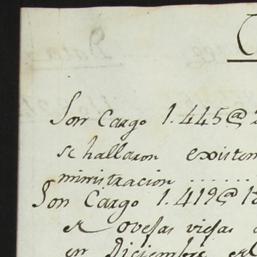 Son Cargo 1.445@
se hallaron existen
ministracion ......
Son Cargo 1.419@ 1
de Ovejas viejas
en Diciembre